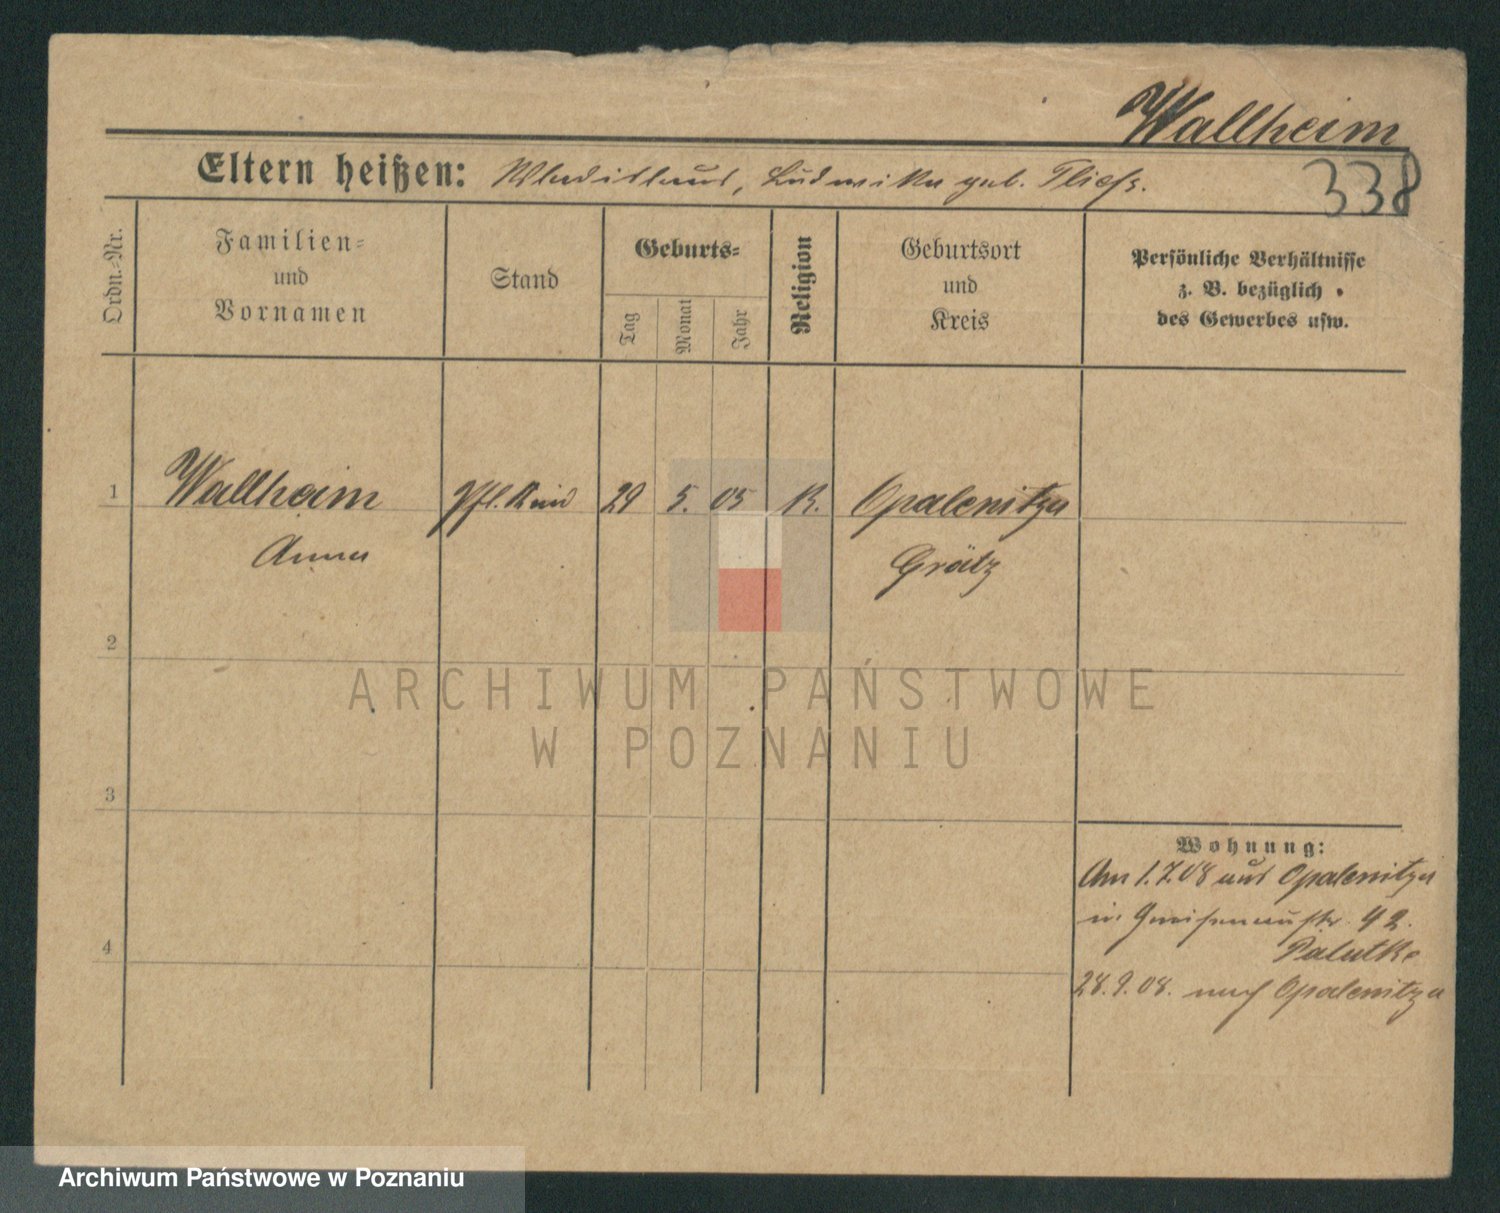 Wallheim
338
Eltern heißen: Wladislaus, Ludwika geb.
Ordn.=Nr.
Familien=
und
Vornamen
Stand
Geburts=
Tag
Monat
Jahr
Religion
Geburtsort
und
Kreis
Persönliche Verhältnisse
z. B. bezüglich
des Gewerbes usw.
1
Wallheim
Anna
Pfl. Kind
29
5.
05
K.
Opalenitza
Grätz
2
3
4
Wohnung:
Am 1.7.08 aus Opalenitza
in Gneisenaustr. 42.
28.9.08. nach Opalenitza
ARCHIWUM PAŃSTWOWE
W POZNANIU
Archiwum Państwowe w Poznaniu